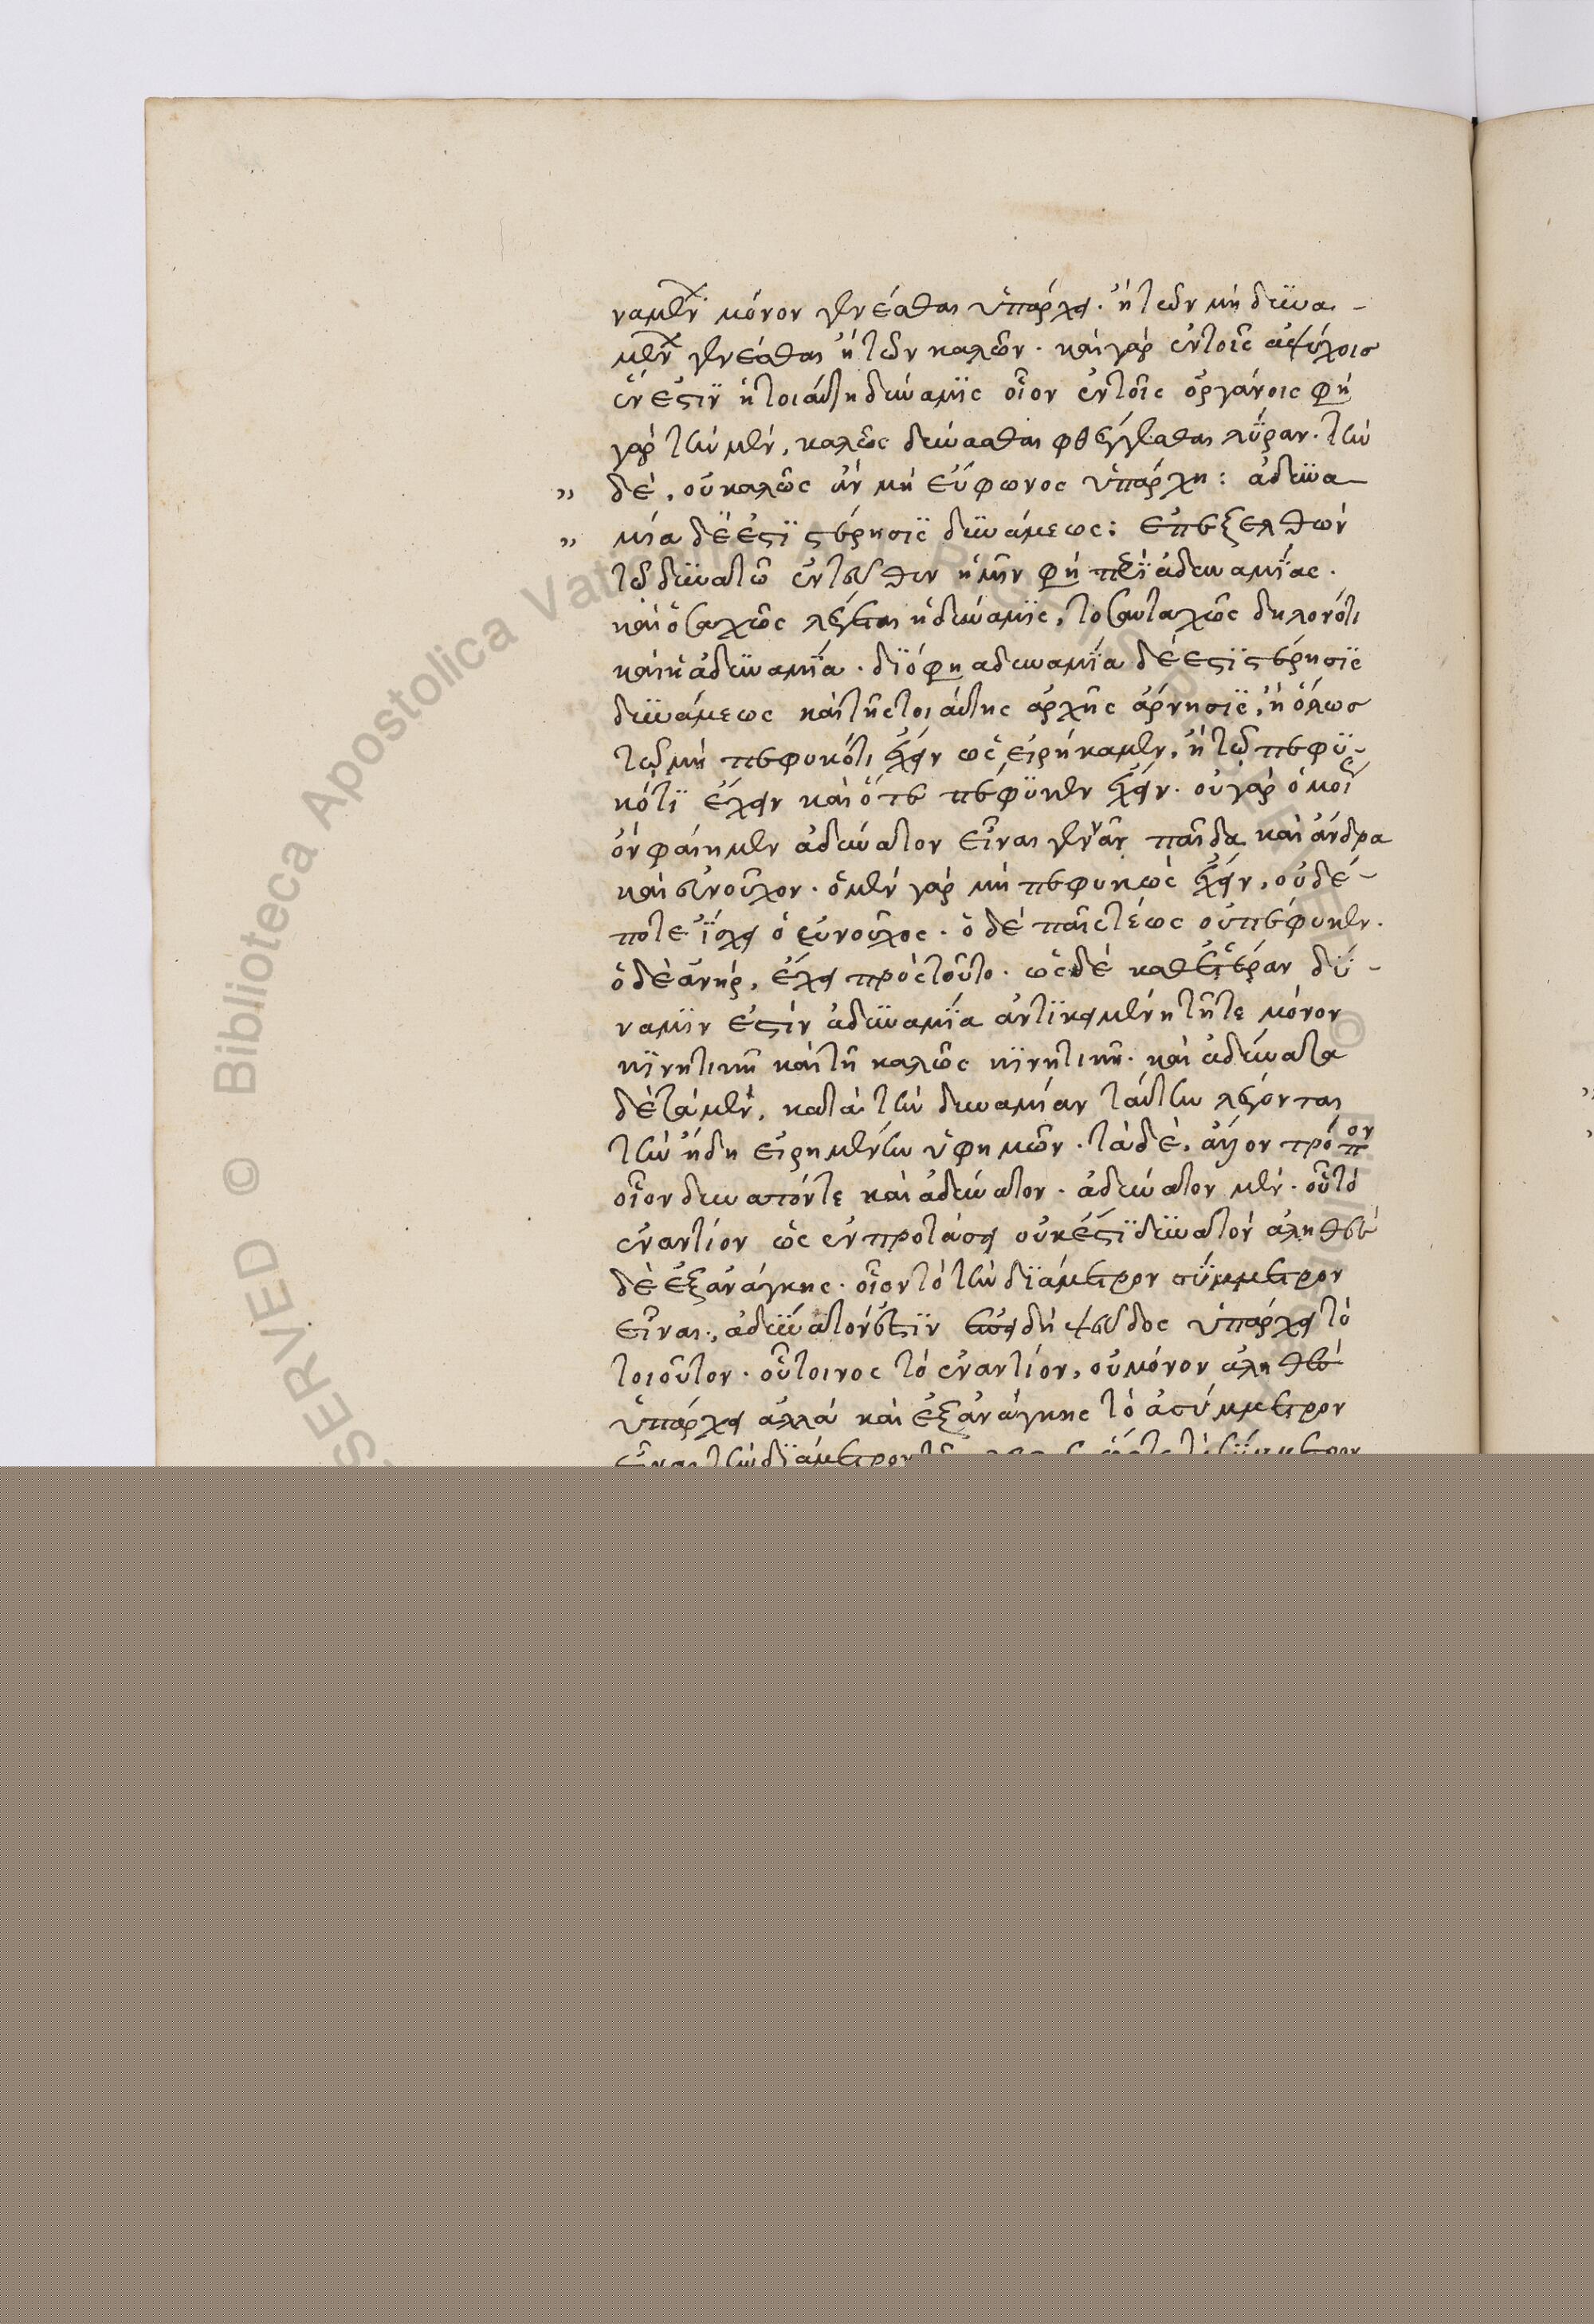 ναμένων μόνον γενέσθαι ὑπάρχει. ἢ τῶν μὴ δυνα-
μένων γενέσθαι ἢ τῶν καλῶν. καὶ γὰρ ἐν τοῖς ἀψύχοις
ἔνεστιν ἡ τοιαύτη δύναμις οἷον ἐν τοῖς ὀργάνοις φησὶ
γὰρ τὴν μὲν, καλῶς δύνασθαι φθέγγεσθαι λύραν. τὴν
„ δὲ, οὐ καλῶς ἂν μὴ εὔφωνος ὑπάρχη: ἀδυνα-
„ μία δέ ἐστι στέρησις δυνάμεως: ἐπεξελθὼν
τῶ δυνατῶ ἐντεῦθεν ἡμῖν φησὶ περὶ ἀδυναμίας.
καὶ ὁσαχῶς λέγεται ἡ δύναμις, τοσαυταχῶς δηλονότι
καὶ ἡ ἀδυναμία. διό φησι ἀδυναμία δέ ἐστι στέρησις
δυνάμεως καὶ τῆς τοιαύτης ἀρχῆς ἄρνησις, ἢ ὅλως
τῶ μὴ πεφυκότι ἔχειν ὡς εἰρήκαμεν, ἢ τῶ πεφυ-
κότι ἔχειν καὶ ὅτε πέφυκεν ἔχειν. οὐ γὰρ ὁμοίως
ἂν φαίημεν ἀδύνατον εἶναι γεννᾶν παῖδα καὶ ἄνδρα
καὶ εὐνοῦχον. ὁ μὲν γὰρ μὴ πεφυκὼς ἔχειν, οὐδέ-
ποτε ἴσχει ὁ εὐνοῦχος. ὁ δὲ παῖς τέως οὐ πέφυκεν.
ὁ δὲ ἀνὴρ, ἔχει πρὸς τοῦτο. ὡς δὲ καθ' ἑτέραν δύ-
ναμιν ἐστὶν ἀδυναμία ἀντικειμένη τῆ τε μόνον
κινητικῆ καὶ τῆ καλῶς κινητικῆ. καὶ ἀδύνατα
δὲ τὰ μὲν, κατὰ τὴν δυναμίαν ταύτην λέγονται
τὴν ἤδη εἰρημένην ὑφ' ἡμῶν. τὰ δὲ, ἄλλον τρόπον
οἷον δυνατόν τε καὶ ἀδύνατον. ἀδύνατον μὲν. οὗ τὸ
ἐναντίον ὡς ἐν προτάσει οὐκ ἔστι δυνατὸν ἀληθεύει
δὲ ἐξ ἀνάγκης. οἷον τὸ τὴν διάμετρον σύμμετρον
εἶναι, ἀδύνατόν ἐστιν ἐπειδὴ ψεῦδος ὑπάρχει τὸ
τοιοῦτον. οὗτινος τὸ ἐναντίον, οὐ μόνον ἀληθὲς
ὑπάρχει ἀλλὰ καὶ ἐξ ἀνάγκης τὸ ἀσύμμετρον
εἶναι τὴν διάμετρον
© Biblioteca Apostolica Vaticana